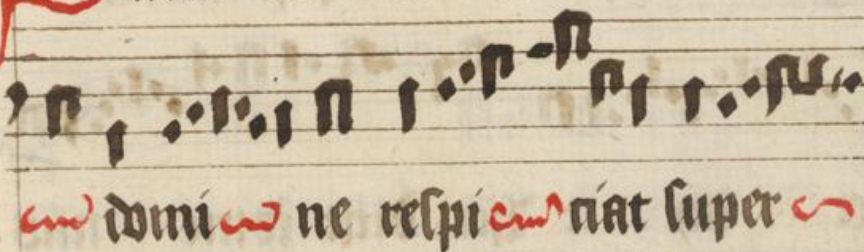 domi ne respi ciat super